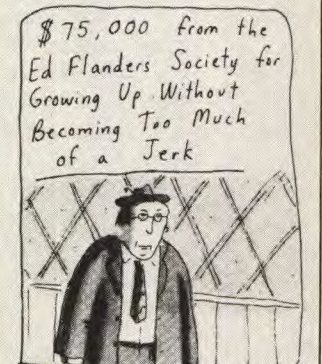 $75,000 from the
Ed Flanders Society for
Growing Up Without
Becoming Too Much
of a Jerk